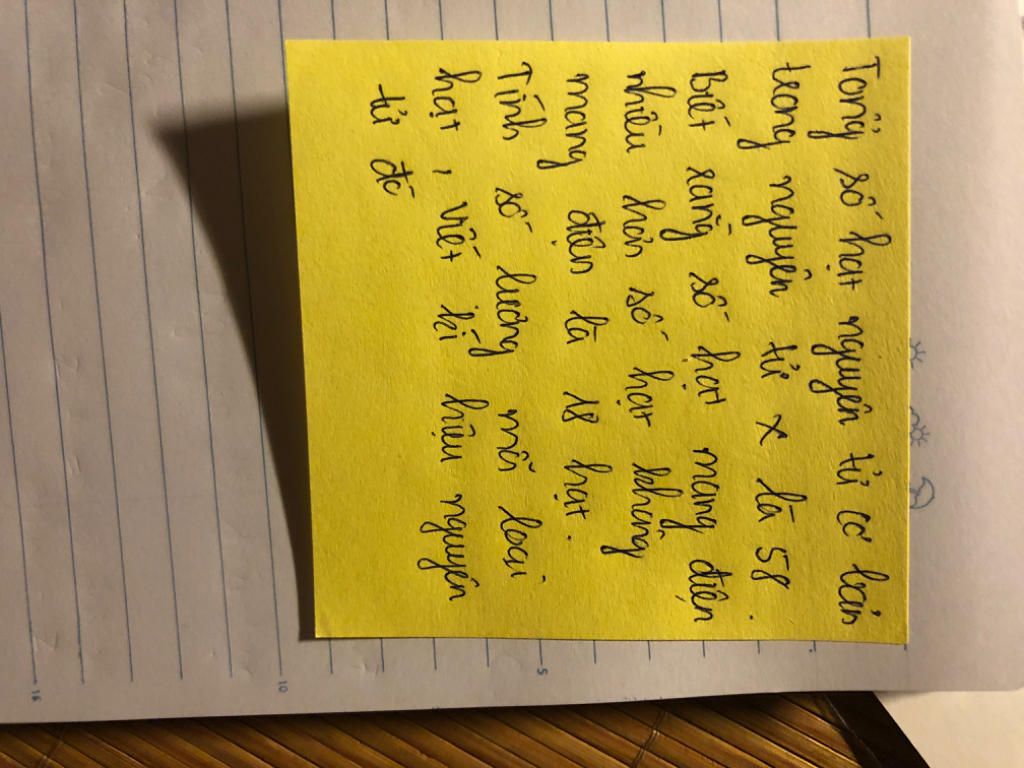 Tổng số hạt nguyên tử cơ bản
trong nguyên tử x là 58.
Biết rằng số hạt mang điện
nhiều hơn số hạt không
mang điện là 18 hạt.
Tính số lượng mỗi loại
hạt, viết kí hiệu nguyên
tử đó
5
10
16